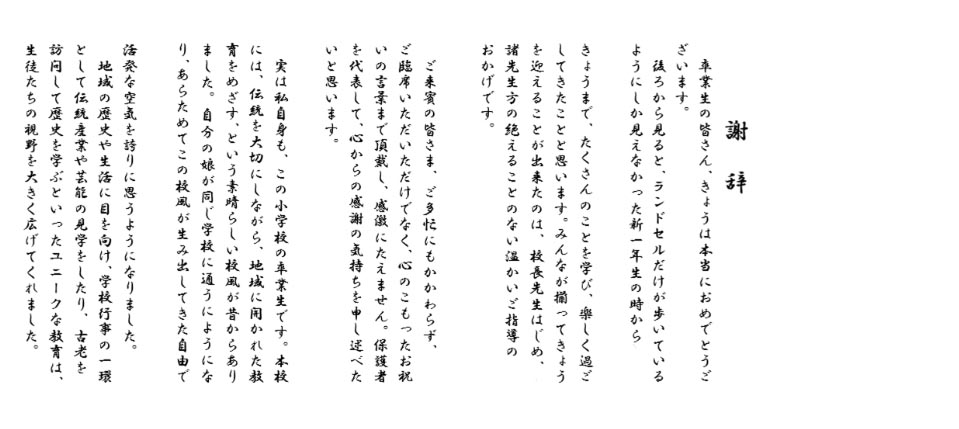 謝辞
卒業生の皆さん、きょうは本当におめでとうご
ざいます。
後ろから見ると、ランドセルだけが歩いている
ようにしか見えなかった新一年生の時から
きょうまで、たくさんのことを学び、楽しく過ご
してきたことと思います。みんなが揃ってきょう
を迎えることが出来たのは、校長先生はじめ、
諸先生方の絶えることのない温かいご指導の
おかげです。
ご来賓の皆さま、ご多忙にもかかわらず、
ご臨席いただいただけでなく、心のこもったお祝
いの言葉まで頂戴し、感激にたえません。保護者
を代表して、心からの感謝の気持ちを申し述べた
いと思います。
実は私自身も、この小学校の卒業生です。本校
には、伝統を大切にしながら、地域に開かれた教
育をめざす、という素晴らしい校風が昔からあり
ました。自分の娘が同じ学校に通うにようにな
り、あらためてこの校風が生み出してきた自由で
活発な空気を誇りに思うようになりました。
地域の歴史や生活に目を向け、学校行事の一環
として伝統産業や芸能の見学をしたり、古老を
訪問して歴史を学ぶといったユニークな教育は、
生徒たちの視野を大きく広げてくれました。